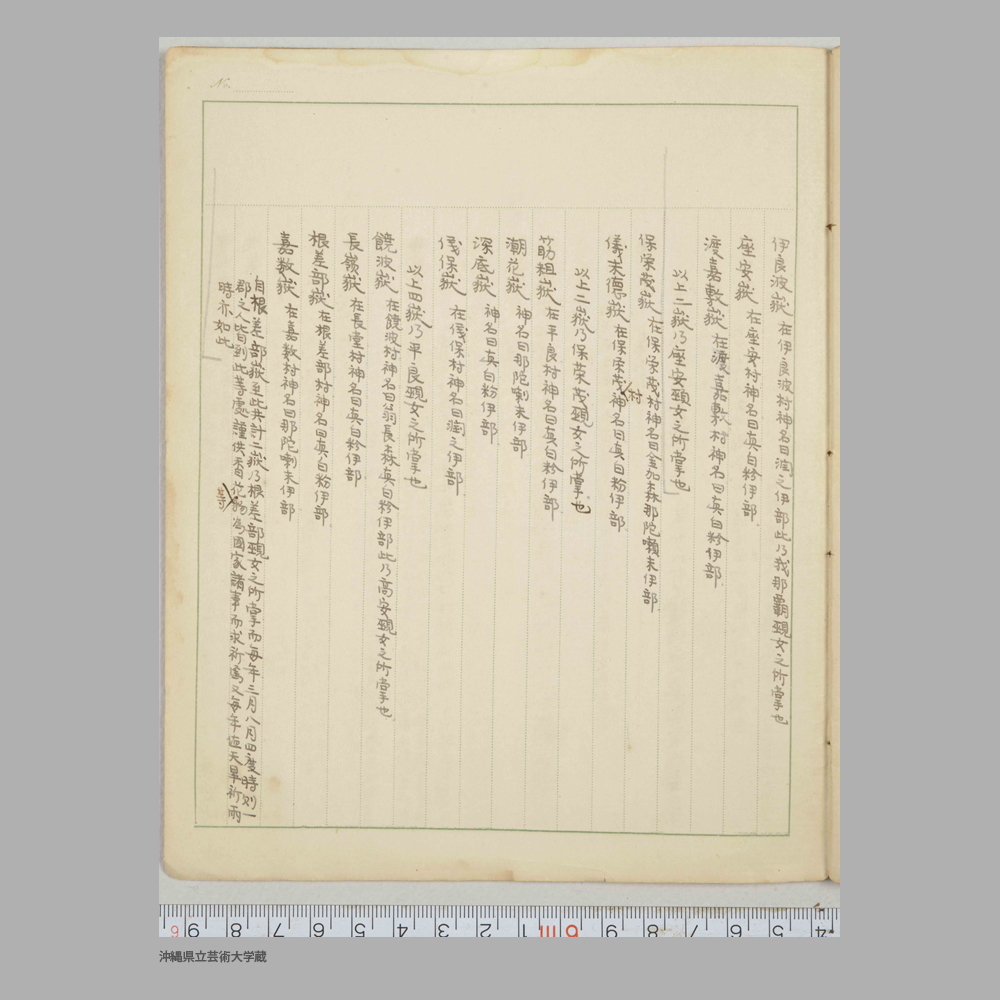 伊良波嶽 在伊良波村神名曰澑之伊部此乃我那覇䚘女之所掌也
座安嶽 在座安村神名曰真白粉伊部
渡嘉敷嶽 在渡嘉敷村神名曰真白粉伊部
以上二嶽乃座安䚘女之所掌也
保栄茂嶽 在保栄茂村神名曰金加森那陀嘞未伊部
儀未德嶽 在保栄茂村神名曰真白粉伊部
以上二嶽乃保栄茂䚘女之所掌也
筋粗嶽 在平良村神名曰真白粉伊部
潮花嶽 神名曰那陀喇未伊部
深底嶽 神名曰真白粉伊部
儀保嶽 在儀保村神名曰澑之伊部
以上四嶽乃平良䚘女之所掌也
饒波嶽 在饒波村神名曰翁長森真白粉伊部此乃高安䚘女之所掌也
長嶺嶽 在長堂村神名曰真白粉伊部
根差部嶽 在根差部村神名曰真白粉伊部
嘉数嶽 在嘉数村神名曰那陀喇未伊部
自根差部嶽至此共計三嶽乃根差部䚘女之所掌而每年三月八月四度時則一
郡之人皆到此等處謹供香花等物為國家諸事而求祈焉又每年逅天旱祈雨
時亦如此
No.
9 8 7 6 5 4 3 2 1 9 8 7 6 5 4
沖縄県立芸術大学蔵